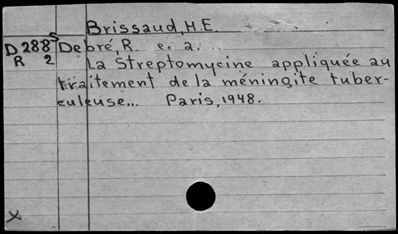 Brissaud, M.E.
D288s Debré, R. e. a. ...
R 2 La Streptomycine appliquée au
traitement de la méningite tuber-
culeuse... Paris, 1948.
x